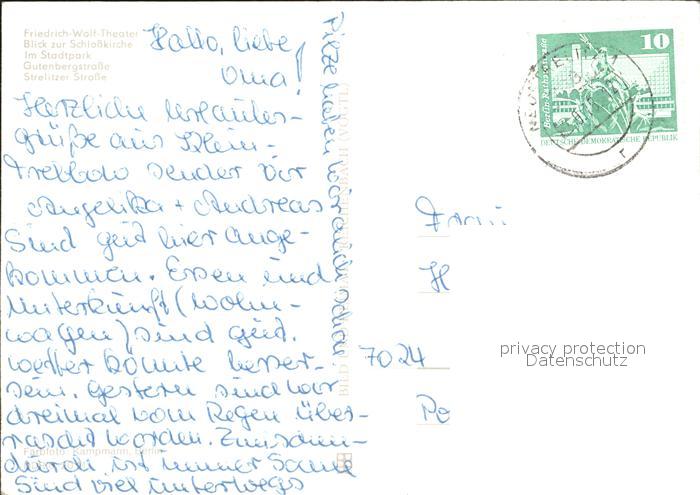 Friedrich-Wolf-Theater
Blick zur Schloßkirche
Im Stadtpark
Gutenbergstraße
Strelitzer Straße
Hallo, liebe
Oma!
Herzliche Urlaubs-
grüße aus Klein-
Trebbow senden Dir
Angelika + Andreas
Sind gut hier ange-
kommen. Essen und
Unterkunft (Wohn-
wagen) sind gut.
Wetter könnte besser
sein. Gestern sind wir
dreimal vom Regen über-
rascht worden. Zwischen-
durch ist immer Sonne
Sind viel unterwegs
Pilze haben wir auch schon
Farbfoto: Kampmann, Berlin
BILD
REICHENBACH (VOGTL)
10
Berlin-Rathausstraße
DEUTSCHE DEMOKRATISCHE REPUBLIK
H
7024
privacy protection
Datenschutz